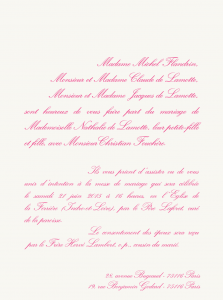 Madame Michel Flandrin,
Monsieur et Madame Claude de Lamotte,
Monsieur et Madame Jacques de Lamotte,
sont heureux de vous faire part du mariage de
Mademoiselle Nathalie de Lamotte, leur petite-fille
et fille, avec Monsieur Christian Foudère.
Ils vous prient d'assister ou de vous
unir d'intention à la messe de mariage qui sera célébrée
le samedi 21 juin 2013 à 16 heures, en l'Eglise de
la Ferrière (Indre-et-Loire), par le Père Lefort, curé
de la paroisse
Le consentement des époux sera reçu
par le Frère Hervé Lambert, o.p., cousin du marié
26 avenue Bugeaud - 75116 Paris
19, rue Benjamin Godard - 75116 Paris